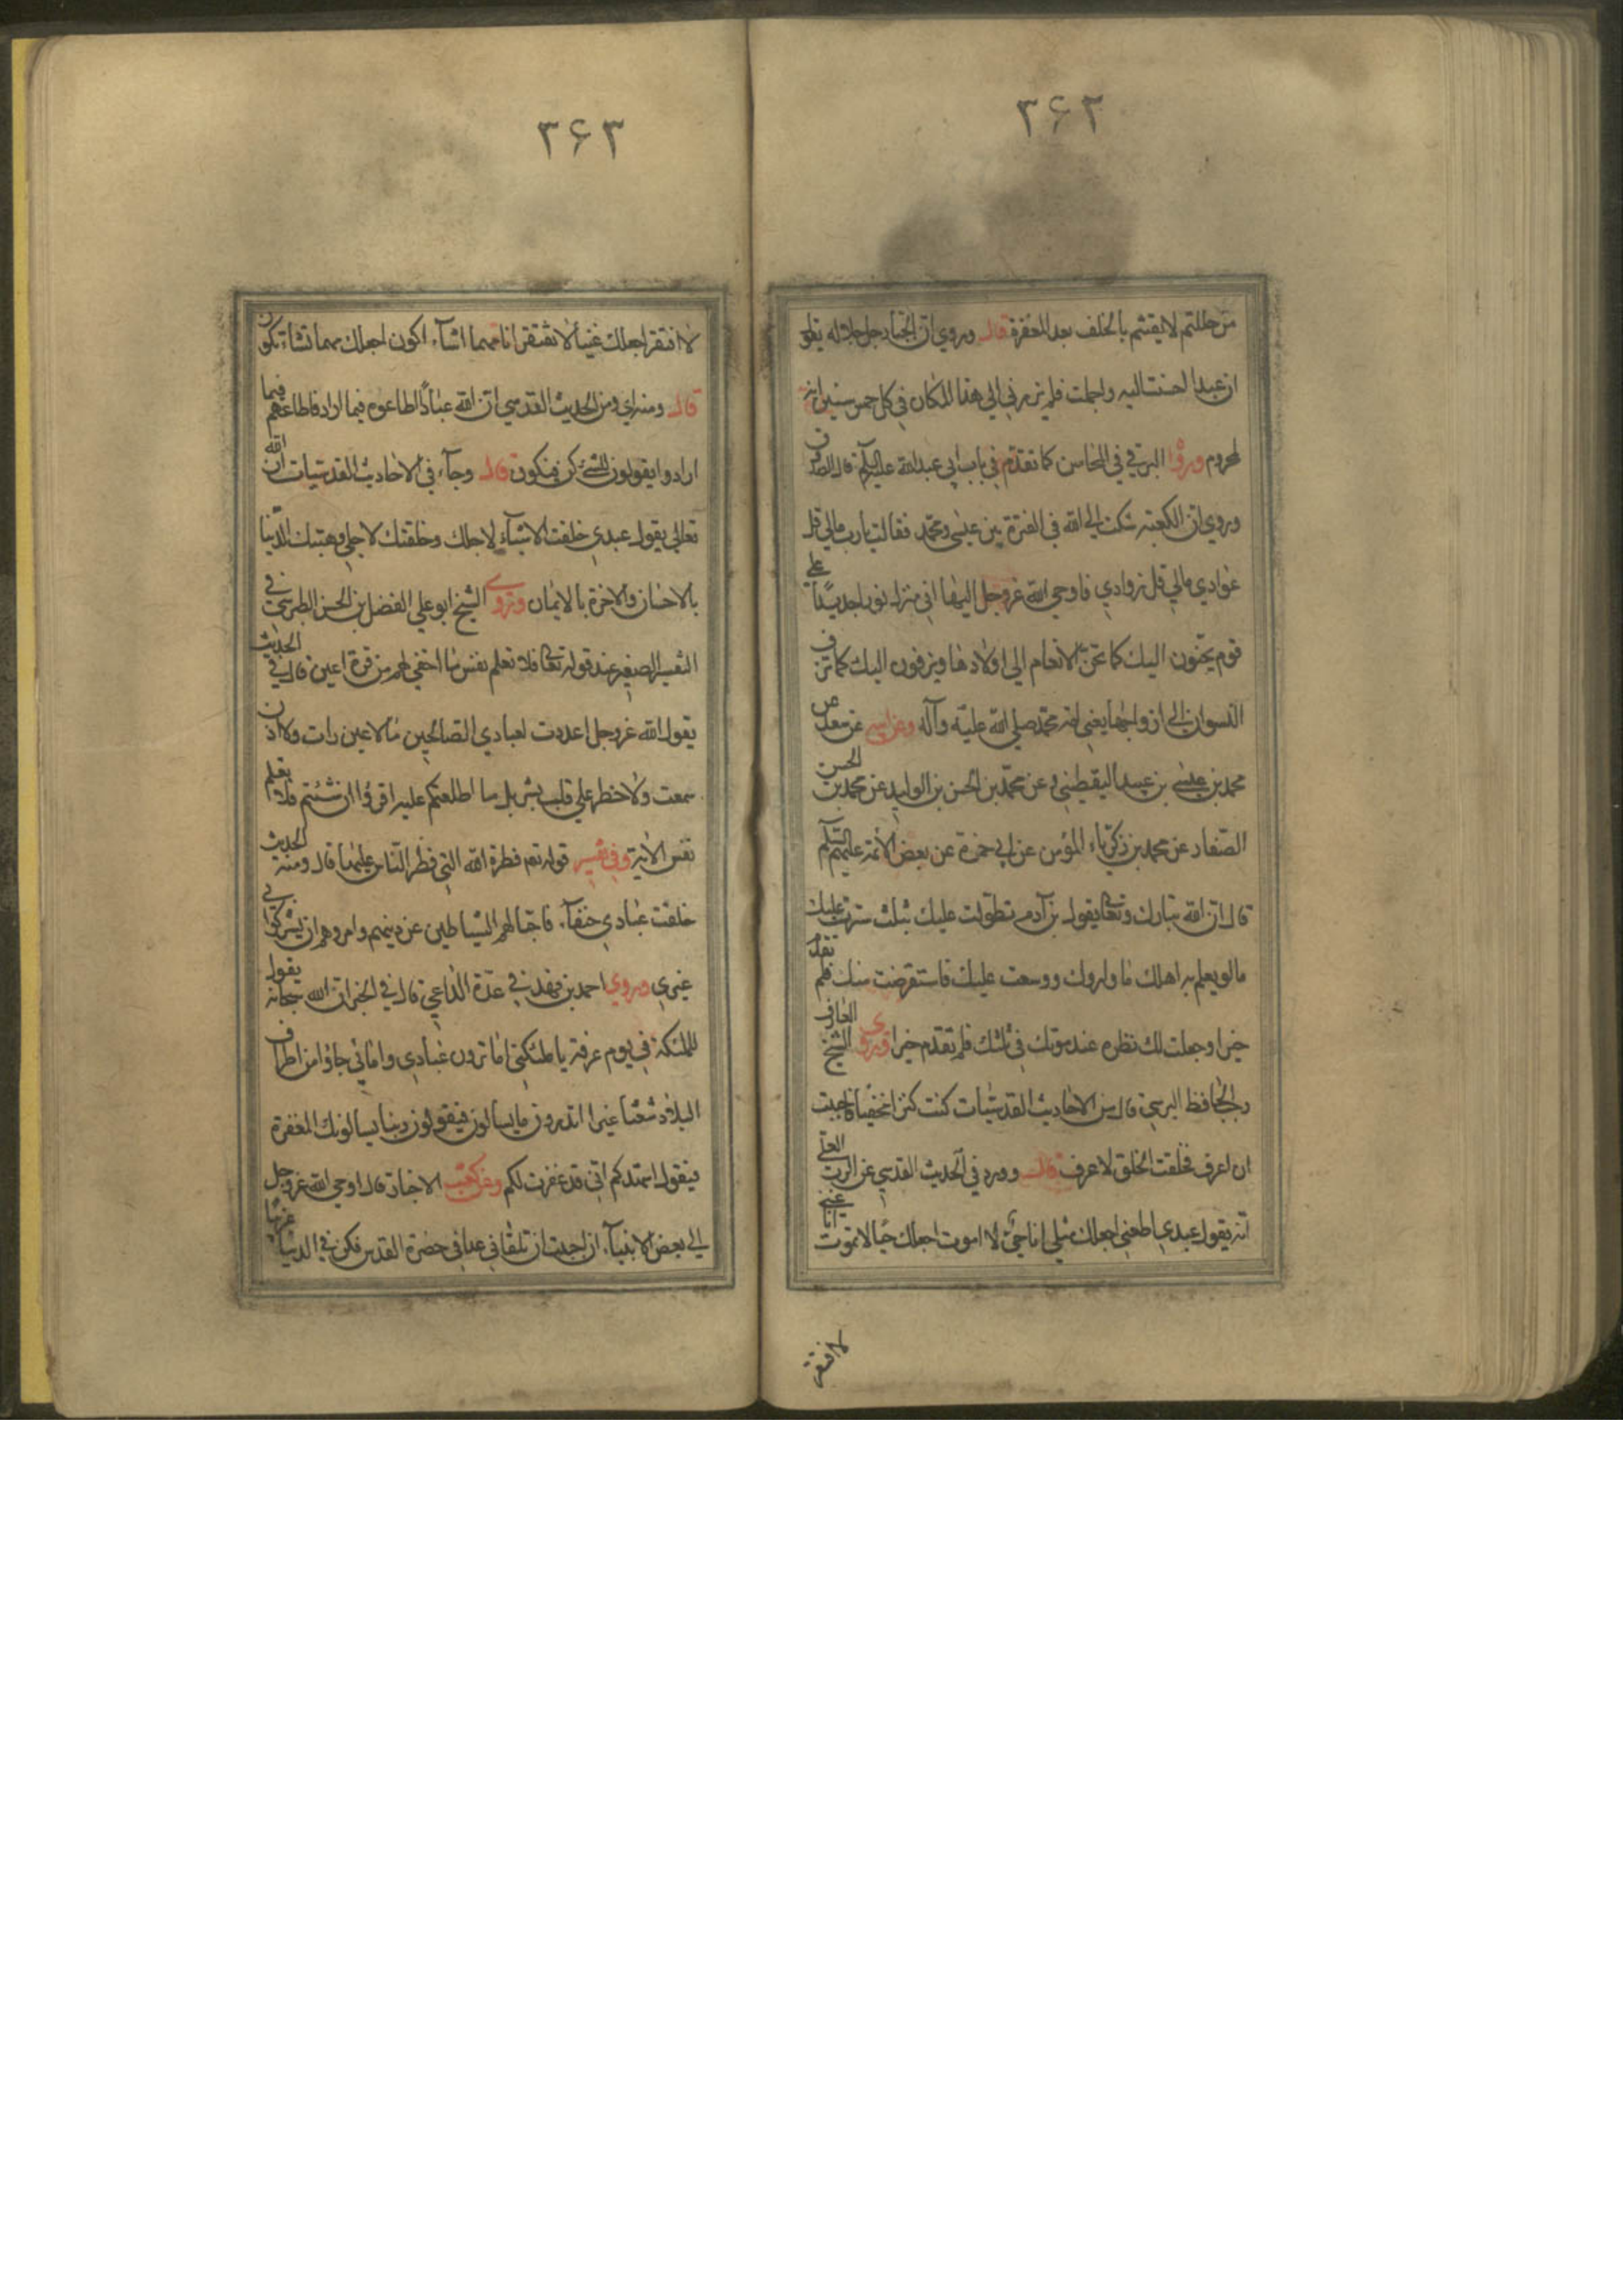 ۳۶۲
من حللتم لايقنتم بالخلف بعد المغفرة قال وروي ان الجبار جل جلاله يقول
ان عبدا احسنت اليه واجملت فلم يزرني الى هذا المكان في كل خمس سنين انه
لمحروم وروا البرقي في المحاسن كما تقدم في باب ابي عبدالله عليه السلم قال الصدوق
وروي ان الكعبة شكت الى الله في الفترة بين عيسى ومحمد فقالت يا رب مالي قل
عوادي مالي قل زوادي فاوحى الله عزوجل اليها اني منزل نورا جديدا على
قوم يحنون اليك كما تحن الانعام الى اولادها ويزفون اليك كما تزف
النسوان الى ازواجها يعني امة محمد صلى الله عليه وآله وعن ابيه عن سعد ص
محمد بن عيسى بن عبيد اليقطيني عن محمد بن الحسن بن الوليد عن محمد بن الحسن
الصفار عن محمد بن زكرياء المؤمن عن ابي حمزة عن بعض الائمة عليهم السلم
قال ان الله تبارك وتعالى يقول بن آدم تطولت عليك بثلث سترت عليك
ما لو يعلم به اهلك ما واروك ووسعت عليك فاستقرضت منك فلم تقدم
خيرا وجعلت لك نظره عند موتك في ثلثك فلم تقدم خيرا وروى الشيخ العارف
رجب الحافظ البرسي قال من الاحاديث القدسيات كنت كنزا مخفيا فاحببت
ان اعرف فخلقت الخلق لاعرف قال وورد في الحديث القدسي عن الرب العلي
انه يقول عبدي اطعني اجعلك مثلي انا حي لا اموت اجعلك حيا لا تموت انا غني
لا افتقر
۳۶۳
لا افتقر اجعلك غنيا لا تفتقر انا مهما اشآء اكون اجعلك مهما تشاء تكون
قال ومنه اي ومن الحديث القدسي ان الله عبادا اطاعوه فيما اراد فاطاعهم فيما
ارادوا يقولون للشئ كن فيكون قال وجآء في الاحاديث القدسيات ان الله
تعالى يقول عبدي خلقت الاشيآء لاجلك وخلقتك لاجلي وهبتك الدنيا
بالاحسان والاخرة بالايمان وروى الشيخ ابو علي الفضل بن الحسن الطبرسي في
التفسير الصغير عند قوله تعالى فلا تعلم نفس ما اخفي لهم من قرة اعين قال في الحديث
يقول الله عزوجل اعددت لعبادي الصالحين ما لا عين رات ولا اذن
سمعت ولا خطر على قلب بشر بل ما اطلعتكم عليه اقرؤا ان شئتم فلا تعلم
نفس الاية وفي تفسير قوله تعم فطرة الله التي فطر الناس عليها قال ومنه الحديث
خلقت عبادي حنفآء فاجتالهم الشياطين عن دينهم وامروهم ان يشركوا بي
غيري وروي احمد بن فهد في عدة الداعي قال في الخبر ان الله سبحانه يقول
للملئكة في يوم عرفة يا ملئكتي اما ترون عبادي وامائي جاؤا من اطراف
البلاد شعثا غبرا اتدرون ما يسالون فيقولون ربنا يسالونك المغفرة
فيقول اشهدكم اني قد غفرت لكم وعن كعب الاحبار قال اوحى الله عزوجل
الى بعض الانبيآء ان احببت ان تلقاني غدا في حضرة القدس فكن في الدنيا غريبا